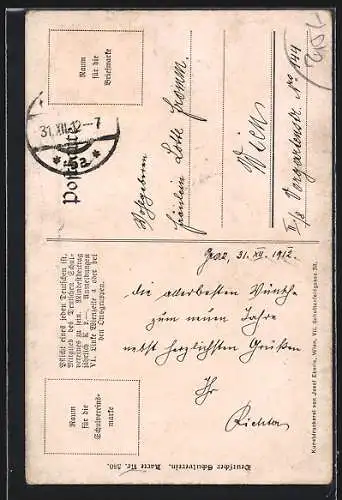 Raum
für die
Briefmarke
31.XII.12–7
* 5a *
Postkarte
Wohlgeboren
Fräulein Lotte Fromm
Wien
II/2 Vorgartenstr. No 144
Pflicht eines jeden Deutschen ist,
Mitglied des Deutschen Schul-
vereines zu sein. Mindestbeitrag
jährlich K 2.—. Anmeldungen
VI. Linke Wienzeile 4 oder bei
den Ortsgruppen.
Raum
für die
Schulvereins-
marke
Graz, 31. XII. 1912.
die allerbesten Wünsche
zum neuen Jahre
nebst herzlichsten Grüßen
Ihr
Richter
Deutscher Schulverein. Karte Nr. 580.
Kunstdruckerei von Josef Eberle, Wien, VII. Schottenfeldgasse 38.